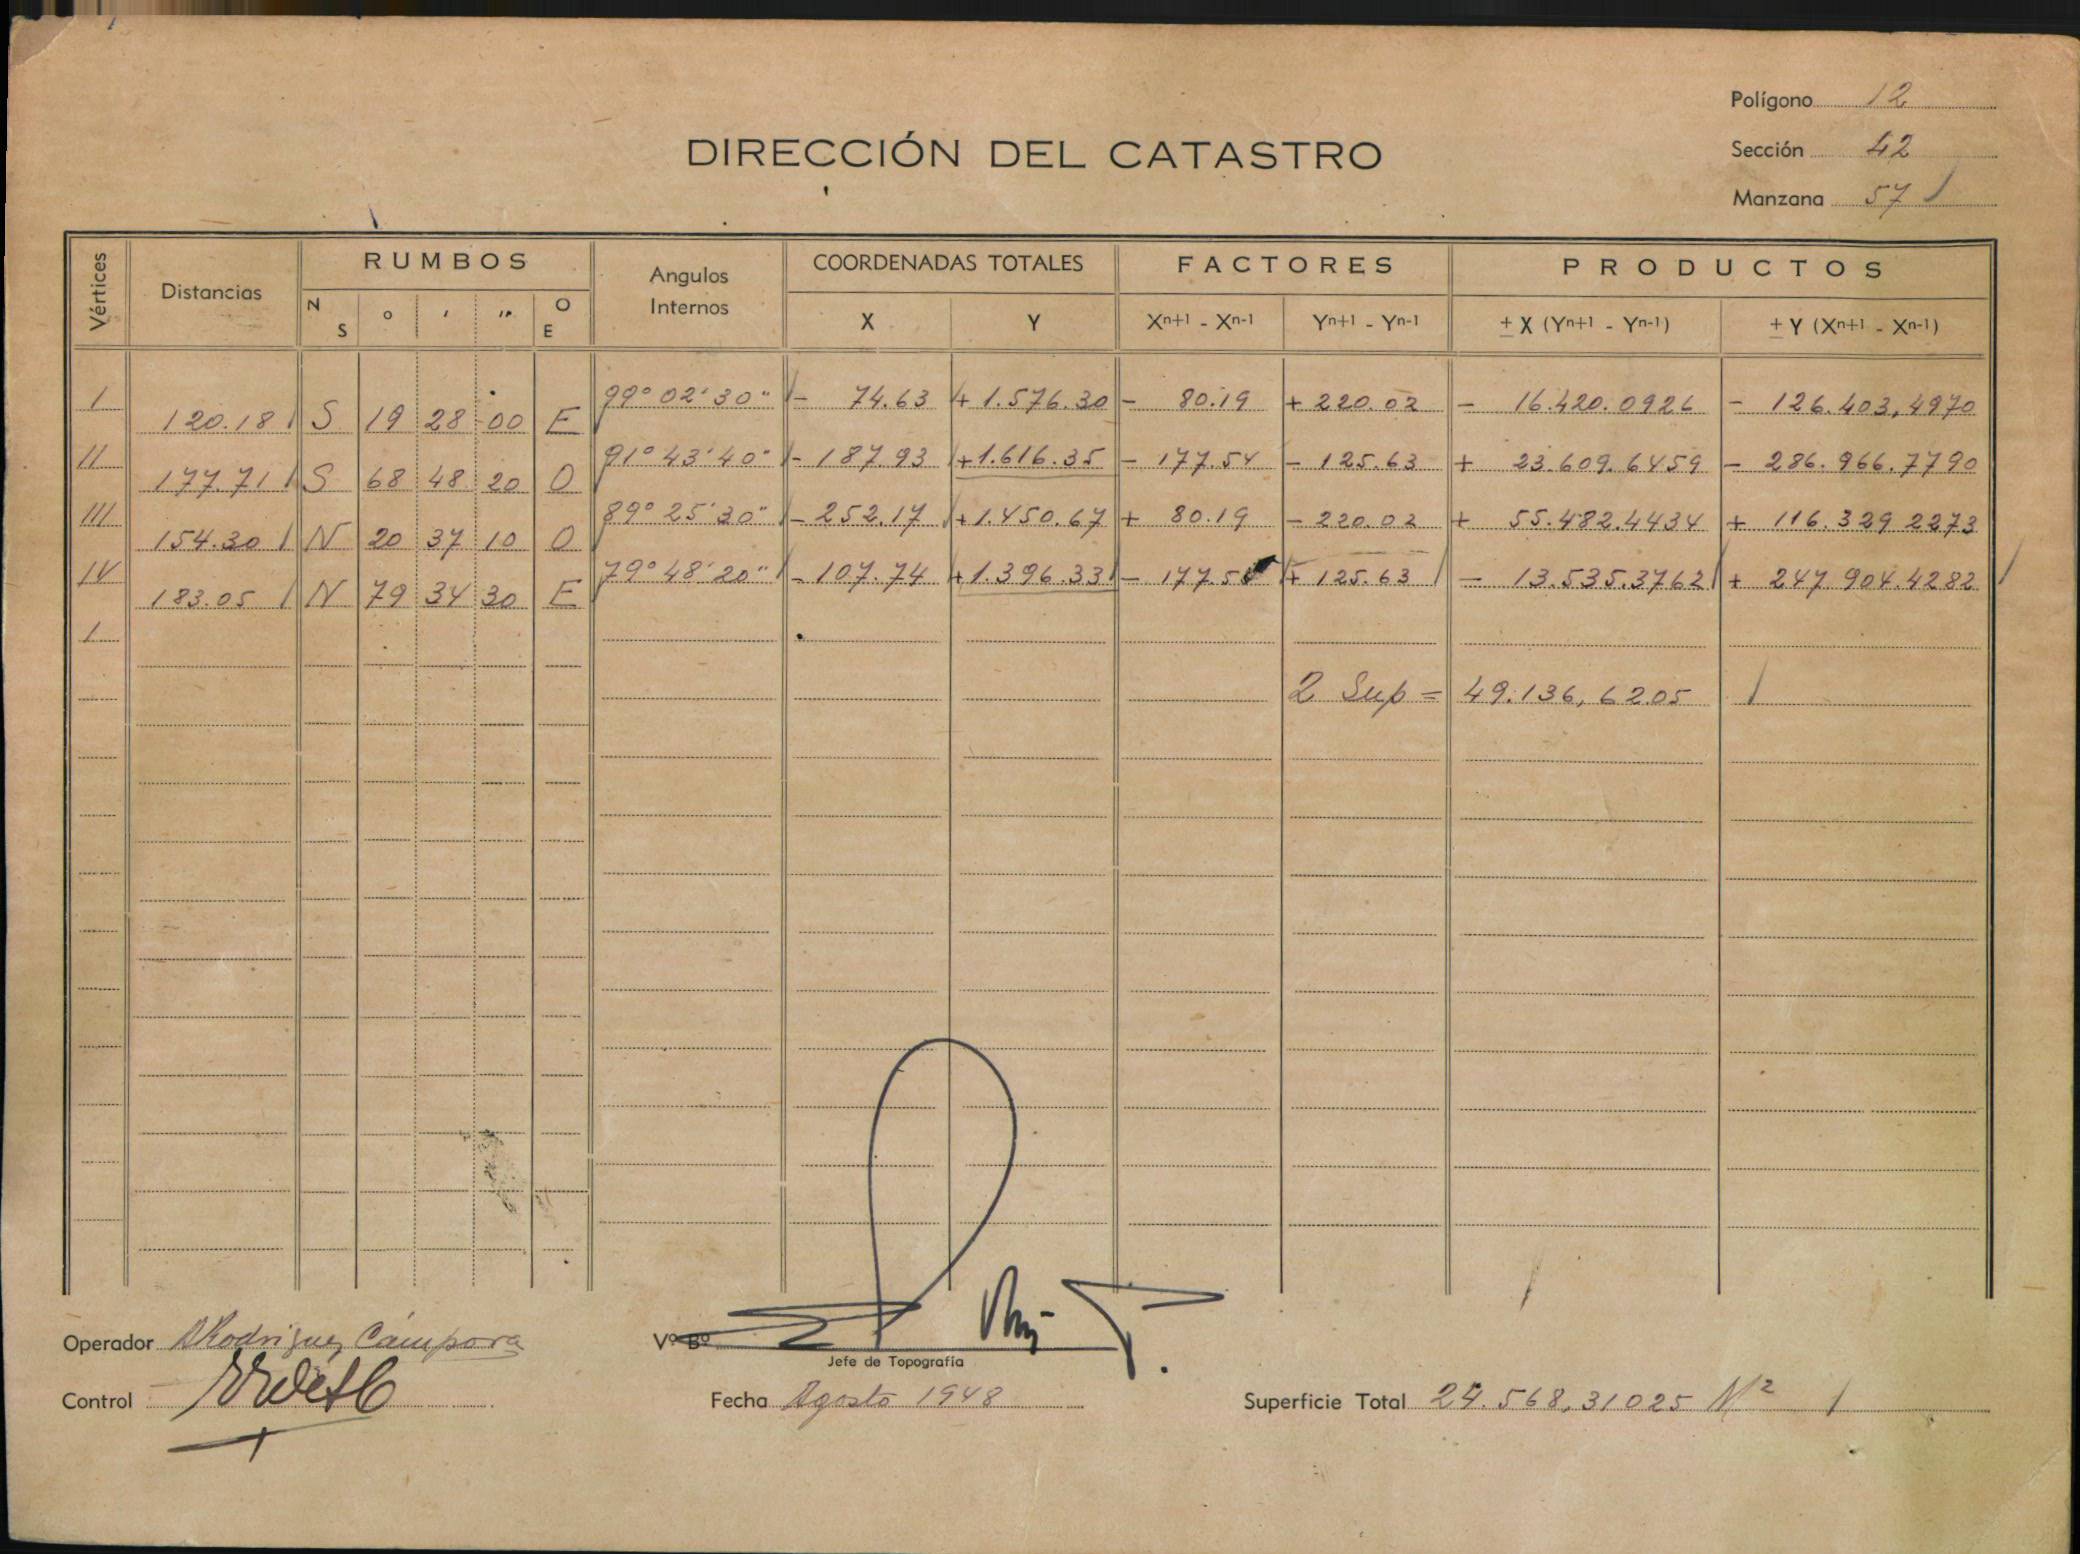 Polígono 12
DIRECCIÓN DEL CATASTRO
Sección 42
Manzana 57
Vértices Distancias RUMBOS Angulos Internos COORDENADAS TOTALES FACTORES PRODUCTOS
N S º ′ ″ O E X Y Xⁿ⁺¹ - Xⁿ⁻¹ Yⁿ⁺¹ - Yⁿ⁻¹ ± X (Yⁿ⁺¹ - Yⁿ⁻¹) ± Y (Xⁿ⁺¹ - Xⁿ⁻¹)
I 99° 02' 30" - 74.63 + 1.576.30 - 80.19 + 220.02 - 16.420.0926 - 126.403,4970
120.18 S 19 28 00 E
II 91° 43' 40" - 187.93 + 1.616.35 - 177.54 - 125.63 + 23.609.6459 - 286.966.7790
177.71 S 68 48 20 O
III 89° 25' 30" - 252.17 + 1.450.67 + 80.19 - 220.02 + 55.482.4434 + 116.329.2273
154.30 N 20 37 10 O
IV 79° 48' 20" - 107.74 + 1.396.33 - + 125.63 - 13.535.3762 + 247.904.4282
183.05 N 79 34 30 E
I
2 Sup = 49.136,6205
Operador Rodriguez Cámpora
Vº Bº
Jefe de Topografía
Control
Fecha Agosto 1948
Superficie Total 24.568,31025 M²